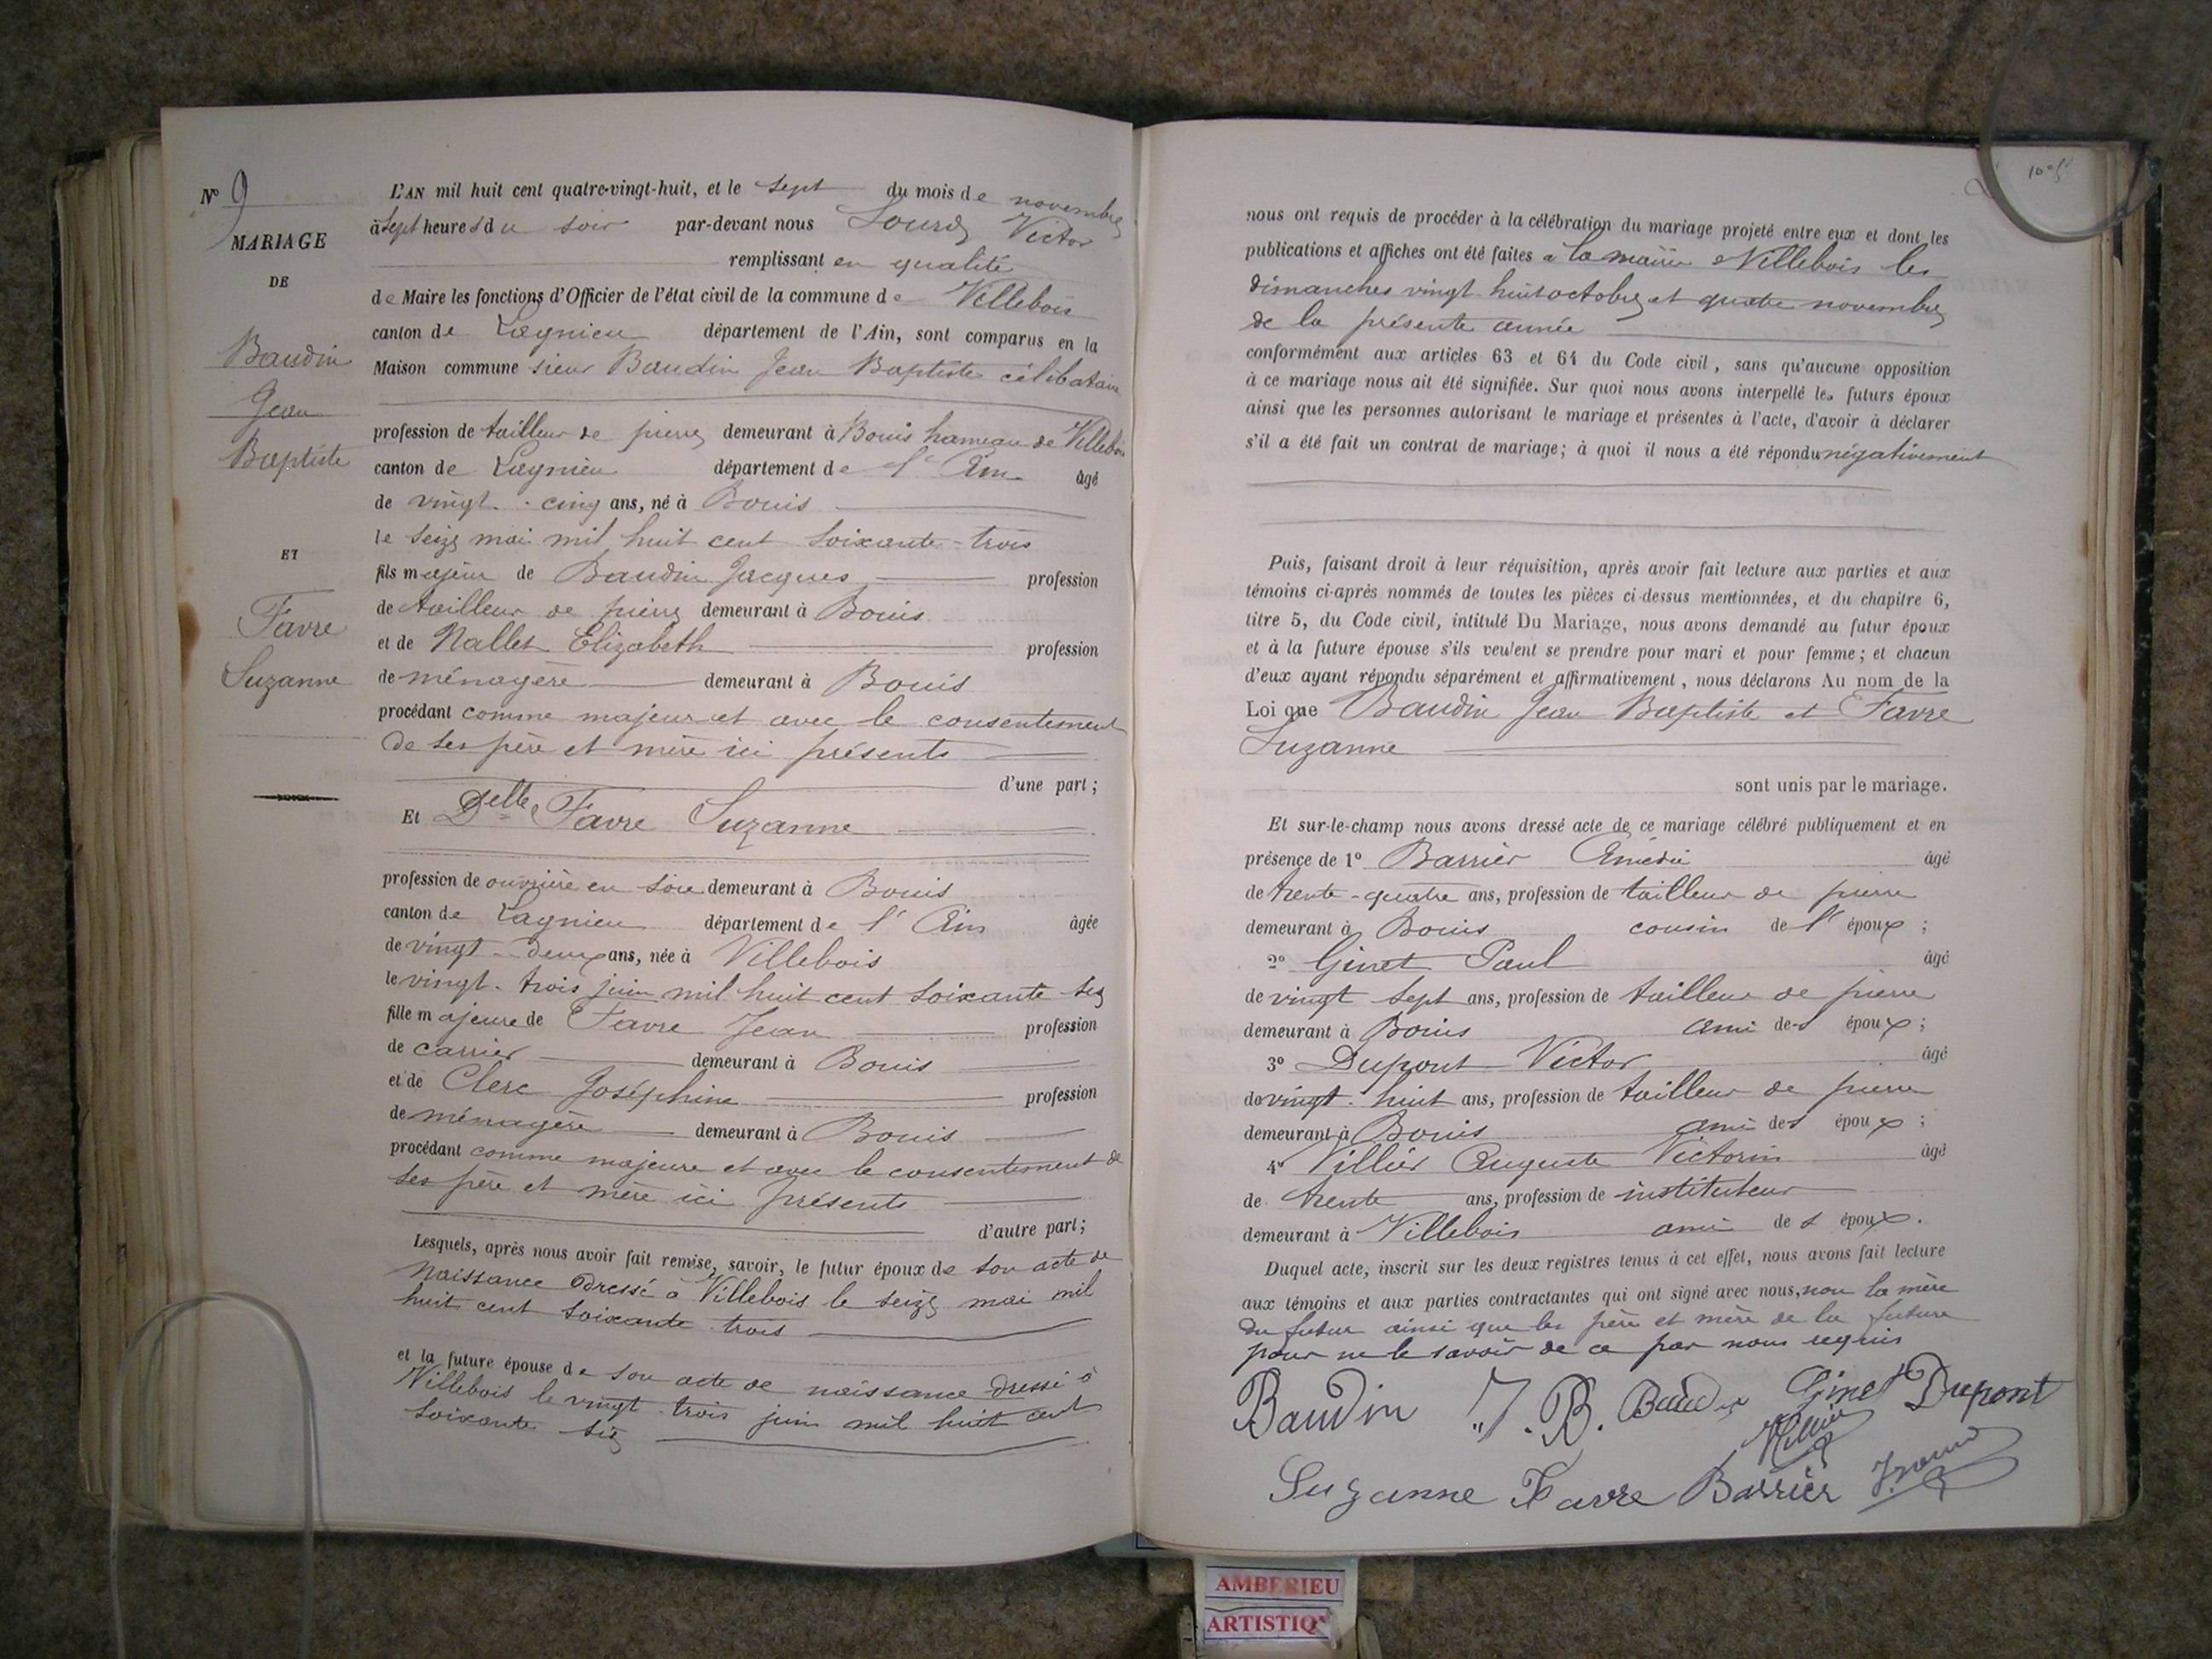 N° 9
MARIAGE
DE
Baudin
Jean
Baptiste
ET
Favre
Suzanne
L'AN mil huit cent quatre-vingt-huit, et le sept du mois de novembre
à sept heures du soir par-devant nous Victor
remplissant en qualité
de Maire les fonctions d'Officier de l'état civil de la commune de Villebois
canton de Lagnieu département de l'Ain, sont comparus en la
Maison commune sieur Baudin Jean Baptiste célibataire
profession de tailleur de pierre demeurant à Bouis hameau de Villebois
canton de Lagnieu département de l'Ain âgé
de vingt-cinq ans, né à Bouis
le seize mai mil huit cent soixante-trois
fils majeur de Baudin Jacques profession
de tailleur de pierre demeurant à Bouis
et de Nallet Elizabeth profession
de ménagère demeurant à Bouis
procédant comme majeur et avec le consentement
de ses père et mère ici présents
d'une part;
Et Delle Favre Suzanne
profession de ouvrière en soie demeurant à Bouis
canton de Lagnieu département de l'Ain âgée
de vingt-deux ans, née à Villebois
le vingt-trois juin mil huit cent soixante-six
fille majeure de Favre Jean profession
de carrier demeurant à Bouis
et de Clerc Joséphine profession
de ménagère demeurant à Bouis
procédant comme majeure et avec le consentement de
ses père et mère ici présents
d'autre part;
Lesquels, après nous avoir fait remise, savoir, le futur époux de son acte de
naissance dressé à Villebois le seize mai mil
huit cent soixante trois
et la future épouse de son acte de naissance dressé à
Villebois le vingt-trois juin mil huit cent
soixante six
nous ont requis de procéder à la célébration du mariage projeté entre eux et dont les
publications et affiches ont été faites à la mairie Villebois les
dimanches vingt-huit octobre et quatre novembre
de la présente année
conformément aux articles 63 et 64 du Code civil, sans qu'aucune opposition
à ce mariage nous ait été signifiée. Sur quoi nous avons interpellé les futurs époux
ainsi que les personnes autorisant le mariage et présentes à l'acte, d'avoir à déclarer
s'il a été fait un contrat de mariage; à quoi il nous a été répondu négativement
Puis, faisant droit à leur réquisition, après avoir fait lecture aux parties et aux
témoins ci-après nommés de toutes les pièces ci-dessus mentionnées, et du chapitre 6,
titre 5, du Code civil, intitulé Du Mariage, nous avons demandé au futur époux
et à la future épouse s'ils veulent se prendre pour mari et pour femme; et chacun
d'eux ayant répondu séparément et affirmativement, nous déclarons Au nom de la
Loi que Baudin Jean Baptiste et Favre
Suzanne
sont unis par le mariage.
Et sur-le-champ nous avons dressé acte de ce mariage célébré publiquement et en
présence de 1° Barrier Amédée âgé
de trente-quatre ans, profession de tailleur de pierre
demeurant à Bouis cousin de l'époux;
2° Ginet Paul âgé
de vingt sept ans, profession de tailleur de pierre
demeurant à Bouis ami des époux;
3° Dupont Victor âgé
de vingt-huit ans, profession de tailleur de pierre
demeurant à Bouis ami des époux;
4° Villier Auguste Victorin âgé
de trente ans, profession de instituteur
demeurant à Villebois ami des époux.
Duquel acte, inscrit sur les deux registres tenus à cet effet, nous avons fait lecture
aux témoins et aux parties contractantes qui ont signé avec nous, non la mère
du futur ainsi que les père et mère de la future
pour ne le savoir de ce par nous requis
Baudin J. B. Baudin Ginet Dupont
Villier
Suzanne Favre Barrier
AMBERIEU
ARTISTIQ